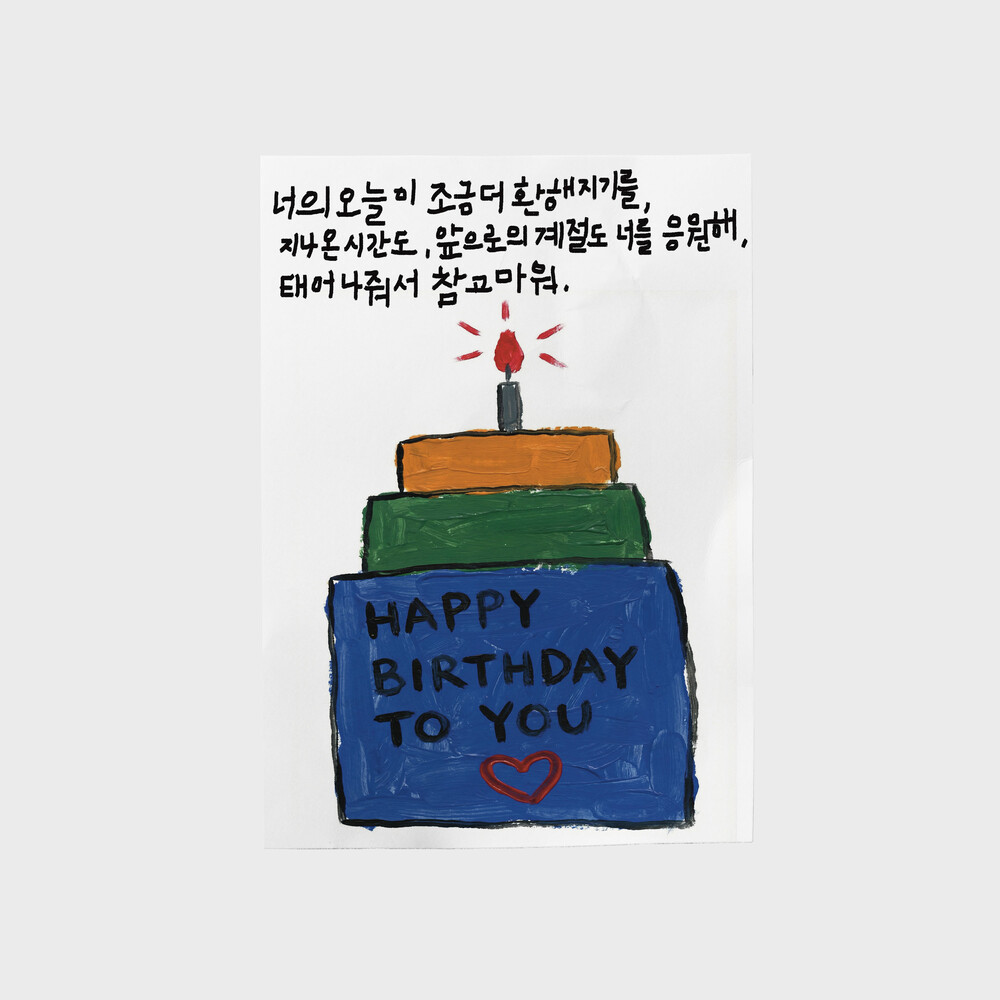 너의 오늘이 조금 더 환해지기를,
지나온 시간도, 앞으로의 계절도 너를 응원해,
태어나줘서 참 고마워.
HAPPY
BIRTHDAY
TO YOU